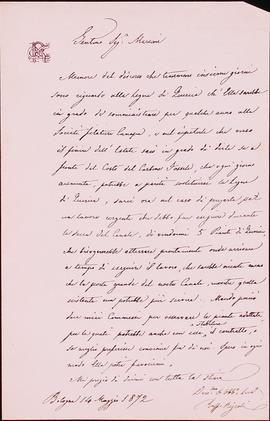 Gentmo Sigr Marsini
Memore del discorso che tenemmo insieme giorni
sono riguardo alla legna di Quercia ch'Ella sarebbe
in grado di somministrare per qualche anno alla
Società Filatura Canapa, e nel ripeterle che verso
il finire dell'Estate sarò in grado di dirle se a
fronte del Costo del Carbone Fossile, che ogni giorno
aumenta, potrebbe a parità sostituirsi la legna
di Quercia, sarei ora nel caso di pregarla per
un lavoro urgente che debbo far eseguire durante
la secca del Canale, di vendermi 5 Piante di Quercia
che bisognerebbe atterrare prontamente onde arrivare
a tempo di eseguire il lavoro, che sarebbe niente meno
che la porta grande del nostro Canale, mentre quella
esistente non potrebbe più servire. Mando perciò
due miei Commessi per osservare le piante adattate,
per le quali potrebbe anche con essi stabilire il contratto, o
se meglio preferisse convenire poi di noi. Spero in ogni
modo Ella potrà favorirmi.
Mi pregio di dirmi con tutta la stima
Bologna 14 Maggio 1872